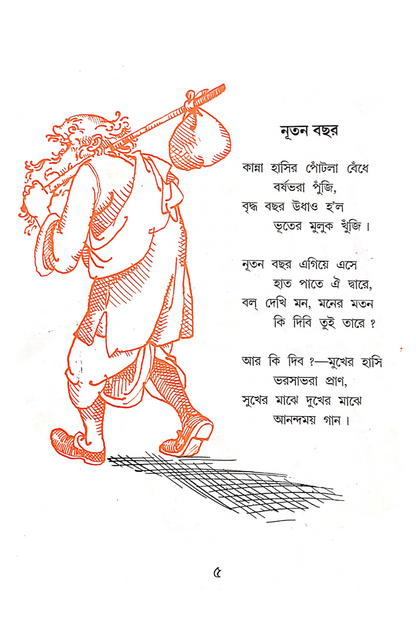 নূতন বছর
কান্না হাসির পোঁটলা বেঁধে
বর্ষভরা পুঁজি,
বৃদ্ধ বছর উধাও হ'ল
ভূতের মুলুক খুঁজি।
নূতন বছর এগিয়ে এসে
হাত পাতে ঐ দ্বারে,
বল্ দেখি মন, মনের মতন
কি দিবি তুই তারে?
আর কি দিব?—মুখের হাসি
ভরসাভরা প্রাণ,
সুখের মাঝে দুখের মাঝে
আনন্দময় গান।
৫